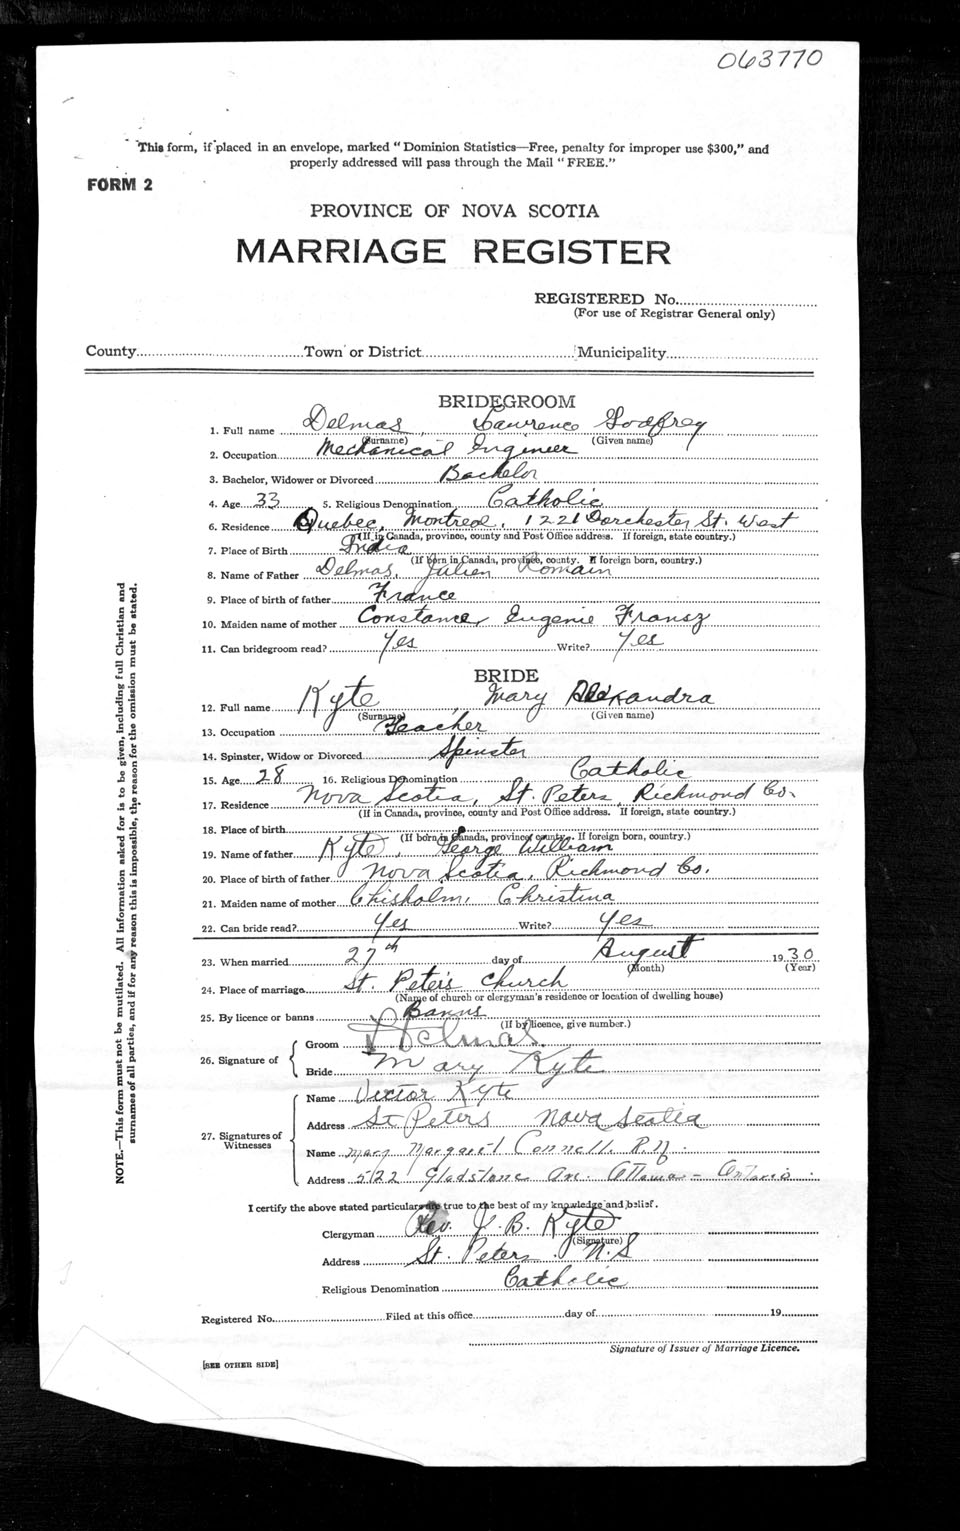 063770
This form, if placed in an envelope, marked "Dominion Statistics—Free, penalty for improper use $300," and
properly addressed will pass through the Mail "FREE."
FORM 2
PROVINCE OF NOVA SCOTIA
MARRIAGE REGISTER
REGISTERED No.
(For use of Registrar General only)
County Town or District Municipality
BRIDEGROOM
1. Full name Delmas, Lawrence Godfrey
(Surname) (Given name)
2. Occupation Mechanical Engineer
3. Bachelor, Widower or Divorced Bachelor
4. Age 33 5. Religious Denomination Catholic
6. Residence Quebec, Montreal, 1221 Dorchester St. West
(If in Canada, province, county and Post Office address. If foreign, state country.)
7. Place of Birth India
(If born in Canada, province, county. If foreign born, country.)
8. Name of Father Delmas, Julien Romain
9. Place of birth of father France
10. Maiden name of mother Constance Eugenie Fransz
11. Can bridegroom read? Yes Write? Yes
BRIDE
12. Full name Kyte, Mary Alexandra
(Surname) (Given name)
13. Occupation Teacher
14. Spinster, Widow or Divorced Spinster
15. Age 28 16. Religious Denomination Catholic
17. Residence Nova Scotia, St. Peters, Richmond Co.
(If in Canada, province, county and Post Office address. If foreign, state country.)
18. Place of birth
(If born in Canada, province, county. If foreign born, country.)
19. Name of father Kyte, George William
20. Place of birth of father Nova Scotia, Richmond Co.
21. Maiden name of mother Chisholm, Christina
22. Can bride read? Yes Write? Yes
23. When married 27th day of August 1930
(Month) (Year)
24. Place of marriage St. Peter's Church
(Name of church or clergyman's residence or location of dwelling house)
25. By licence or banns Banns
(If by licence, give number.)
26. Signature of
Groom Delmas.
Bride Mary Kyte
27. Signatures of Witnesses
Name Victor Kyte
Address St Peters Nova Scotia
Name Mary Margaret Connell. R.N.
Address 522 Gladstone Av. Ottawa - Ontario
I certify the above stated particulars are true to the best of my knowledge and belief.
Clergyman Rev. J. B. Kyte
(Signature)
Address St. Peters. N.S
Religious Denomination Catholic
Registered No. Filed at this office day of 19
Signature of Issuer of Marriage Licence.
[SEE OTHER SIDE]
NOTE.—This form must not be mutilated. All information asked for is to be given, including full Christian and
surnames of all parties, and if for any reason this is impossible, the reason for the omission must be stated.